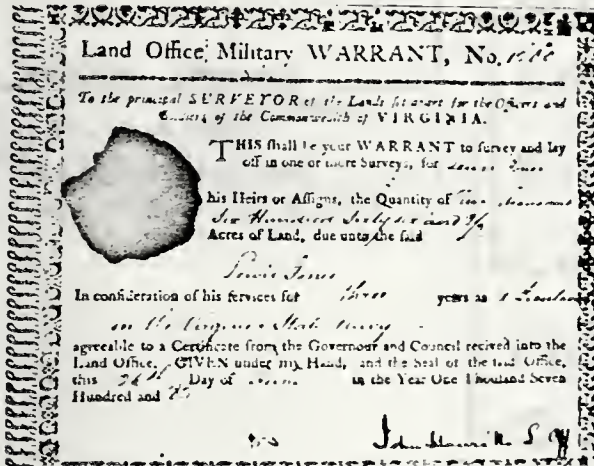 Land Office Military WARRANT, No.
To the principal SURVEYOR of the Lands set apart for the Officers and
Soldiers of the Commonwealth of VIRGINIA.
THIS shall be your WARRANT to survey and lay
off in one or more Surveys, for
his Heirs or Assigns, the Quantity of Two thousand
Six Hundred Sixty six and 2/3
Acres of Land, due unto the said
Lewis Jones
In consideration of his services for three years as a
in the Virginia State Navy
agreeable to a Certificate from the Governour and Council recived into the
Land Office. GIVEN under my Hand, and the Seal of the said Office,
this Day of in the Year One Thousand Seven
Hundred and
John